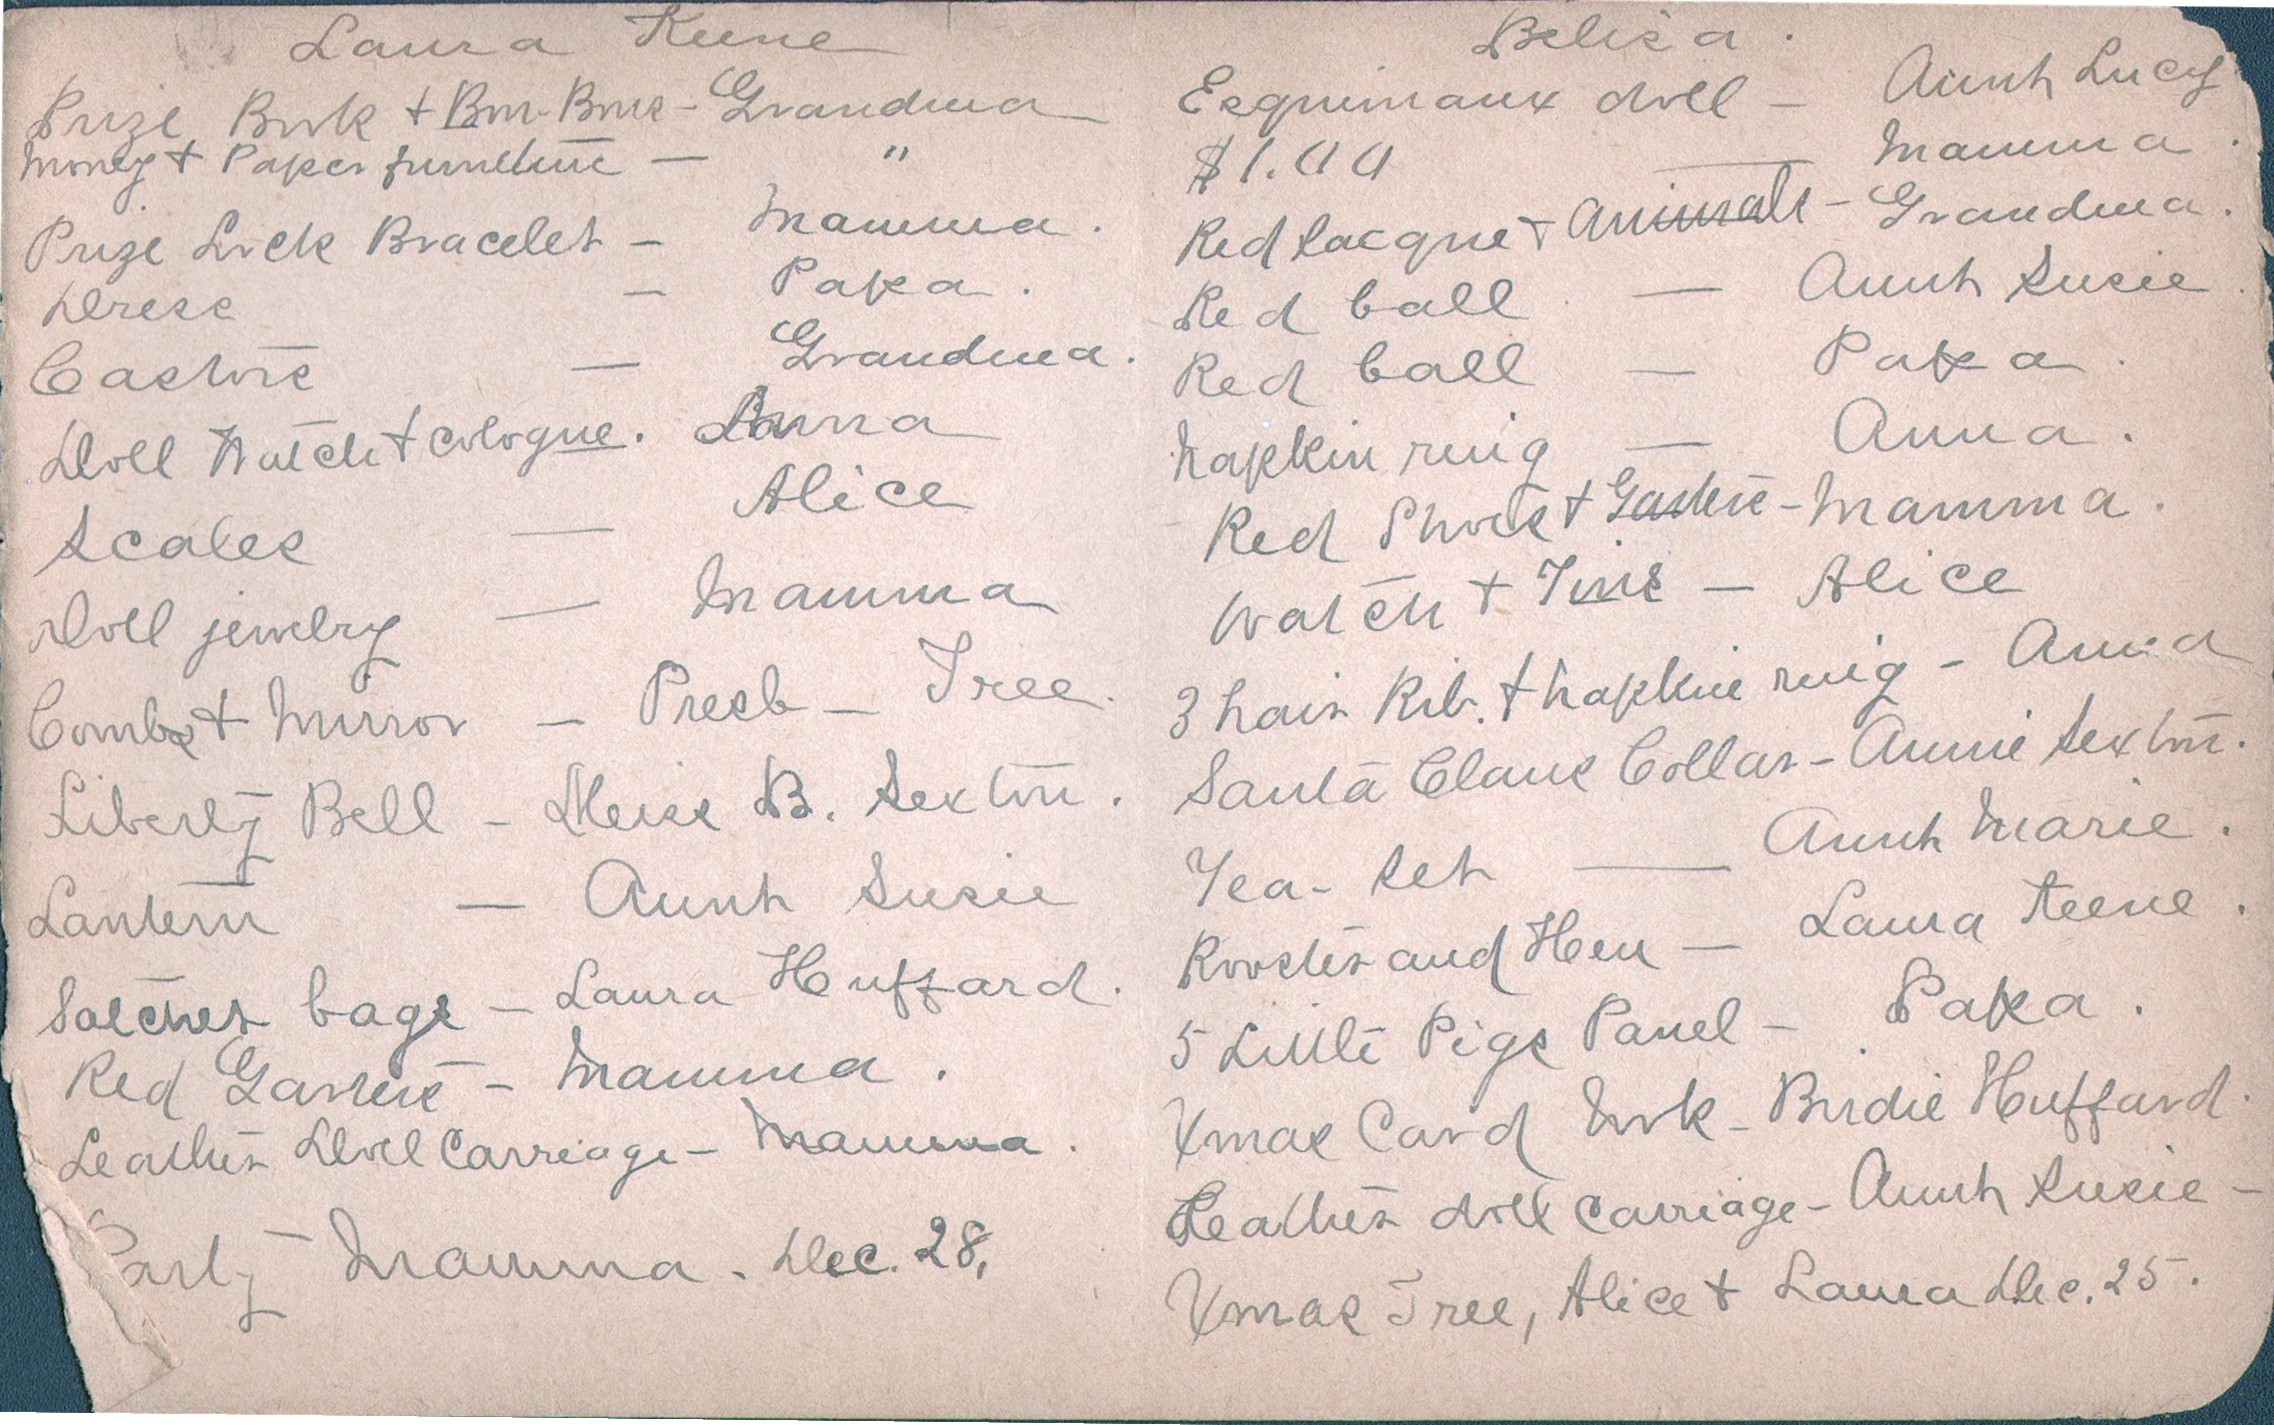 Laura Keene
Prize Book + Bon-Bons - Grandma
Money + Paper furniture — "
Prize Lock Bracelet — Mamma.
Dress — Papa.
Castors — Grandma.
Doll Watch + cologne. Anna
Scales — Alice
Doll jewelry — Mamma
Combs + Mirror — Presb — Tree.
Liberty Bell — Miss B. Sexton.
Lantern — Aunt Susie
Satchet bags — Laura Huffard.
Red Garters — Mamma.
Leather Doll Carriage — Mamma.
Party Mamma. Dec. 28,
Belisa.
Esquimaux doll — Aunt Lucy
$1.00 — Mamma.
Red sacque + animals — Grandma.
Red ball — Aunt Susie.
Red ball — Papa.
Napkin ring — Anna.
Red Shoes + Garters — Mamma.
Watch + Tins — Alice
3 hair Rib. + napkin ring — Anna
Santa Claus Collar — Annie Sexton.
Tea-set — Aunt Marie.
Rooster and Hen — Laura Keene.
5 Little Pigs Panel — Papa.
Xmas Card Work — Birdie Huffard.
Leather doll carriage — Aunt Susie —
Xmas Tree, Alice + Laura Dec. 25.